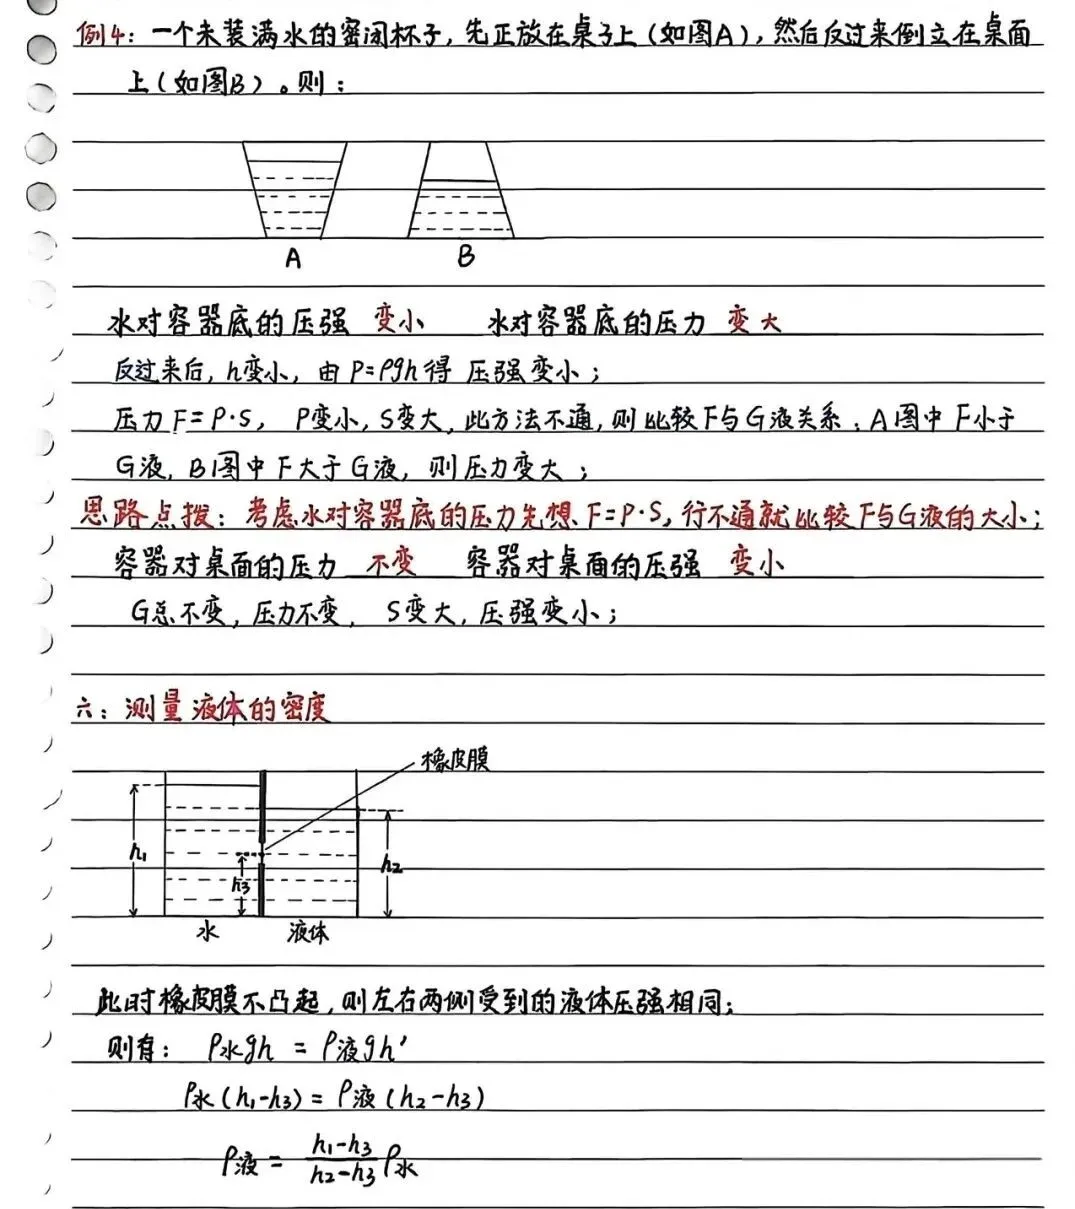 例4：一个未装满水的密闭杯子，先正放在桌子上（如图A），然后反过来倒立在桌面
上（如图B）。则：
A B
水对容器底的压强 变小 水对容器底的压力 变大
反过来后，h变小，由P=ρgh得 压强变小；
压力F=P·S， P变小，S变大，此方法不通，则比较F与G液关系。A图中F小于
G液，B图中F大于G液，则压力变大；
思路点拨：考虑水对容器底的压力先想F=P·S，行不通就比较F与G液的大小；
容器对桌面的压力 不变 容器对桌面的压强 变小
G总不变，压力不变， S变大，压强变小；
六：测量液体的密度
橡皮膜
h₁ h₃ h₂
水 液体
此时橡皮膜不凸起，则左右两侧受到的液体压强相同；
则有： ρ水gh = ρ液gh′
ρ水（h₁-h₃）= ρ液（h₂-h₃）
ρ液 = h₁-h₃/h₂-h₃ ρ水